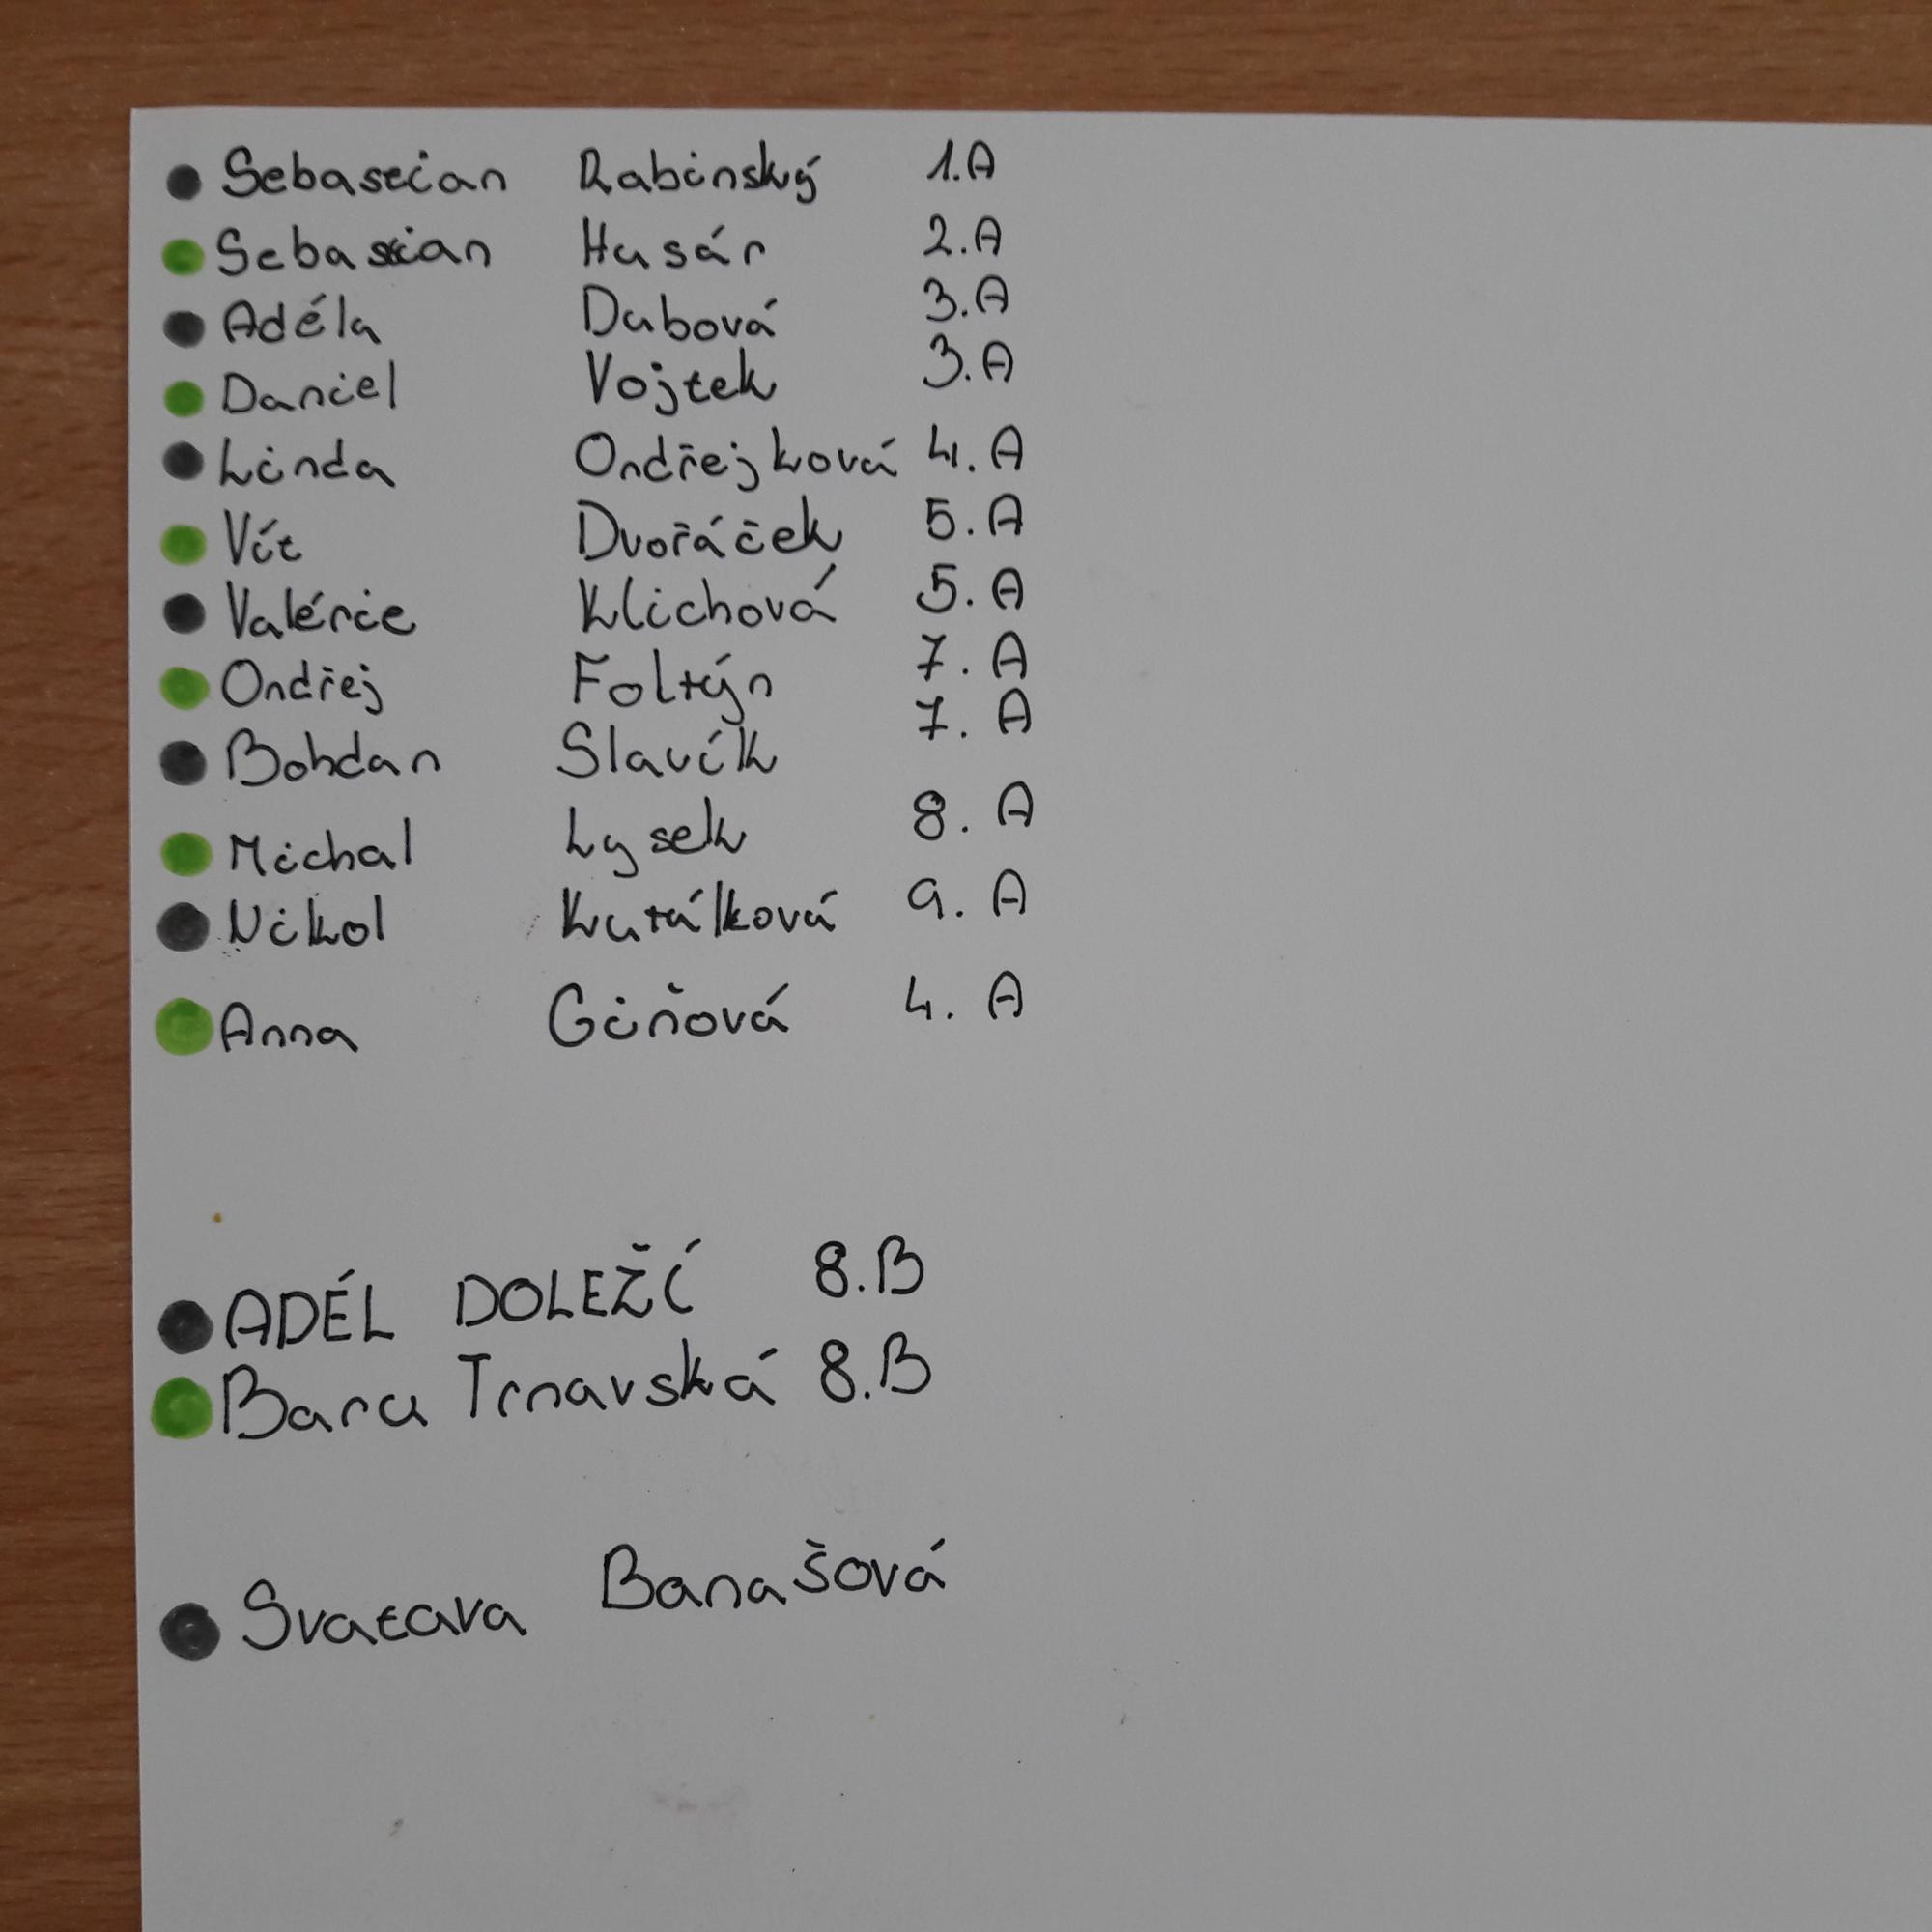 Sebastian Rabinský 1.A
Sebastian Husár 2.A
Adéla Dubová 3.A
Daniel Vojtek 3.A
Linda Ondřejková 4.A
Vít Dvořáček 5.A
Valérie Klichová 5.A
Ondřej Foltýn 7.A
Bohdan Slavík 7.A
Michal Lysek 8.A
Nikol Kutálková 9.A
Anna Giňová 4.A
ADÉL DOLEŽÍ 8.B
Baru Trnavská 8.B
Svatava Banašová